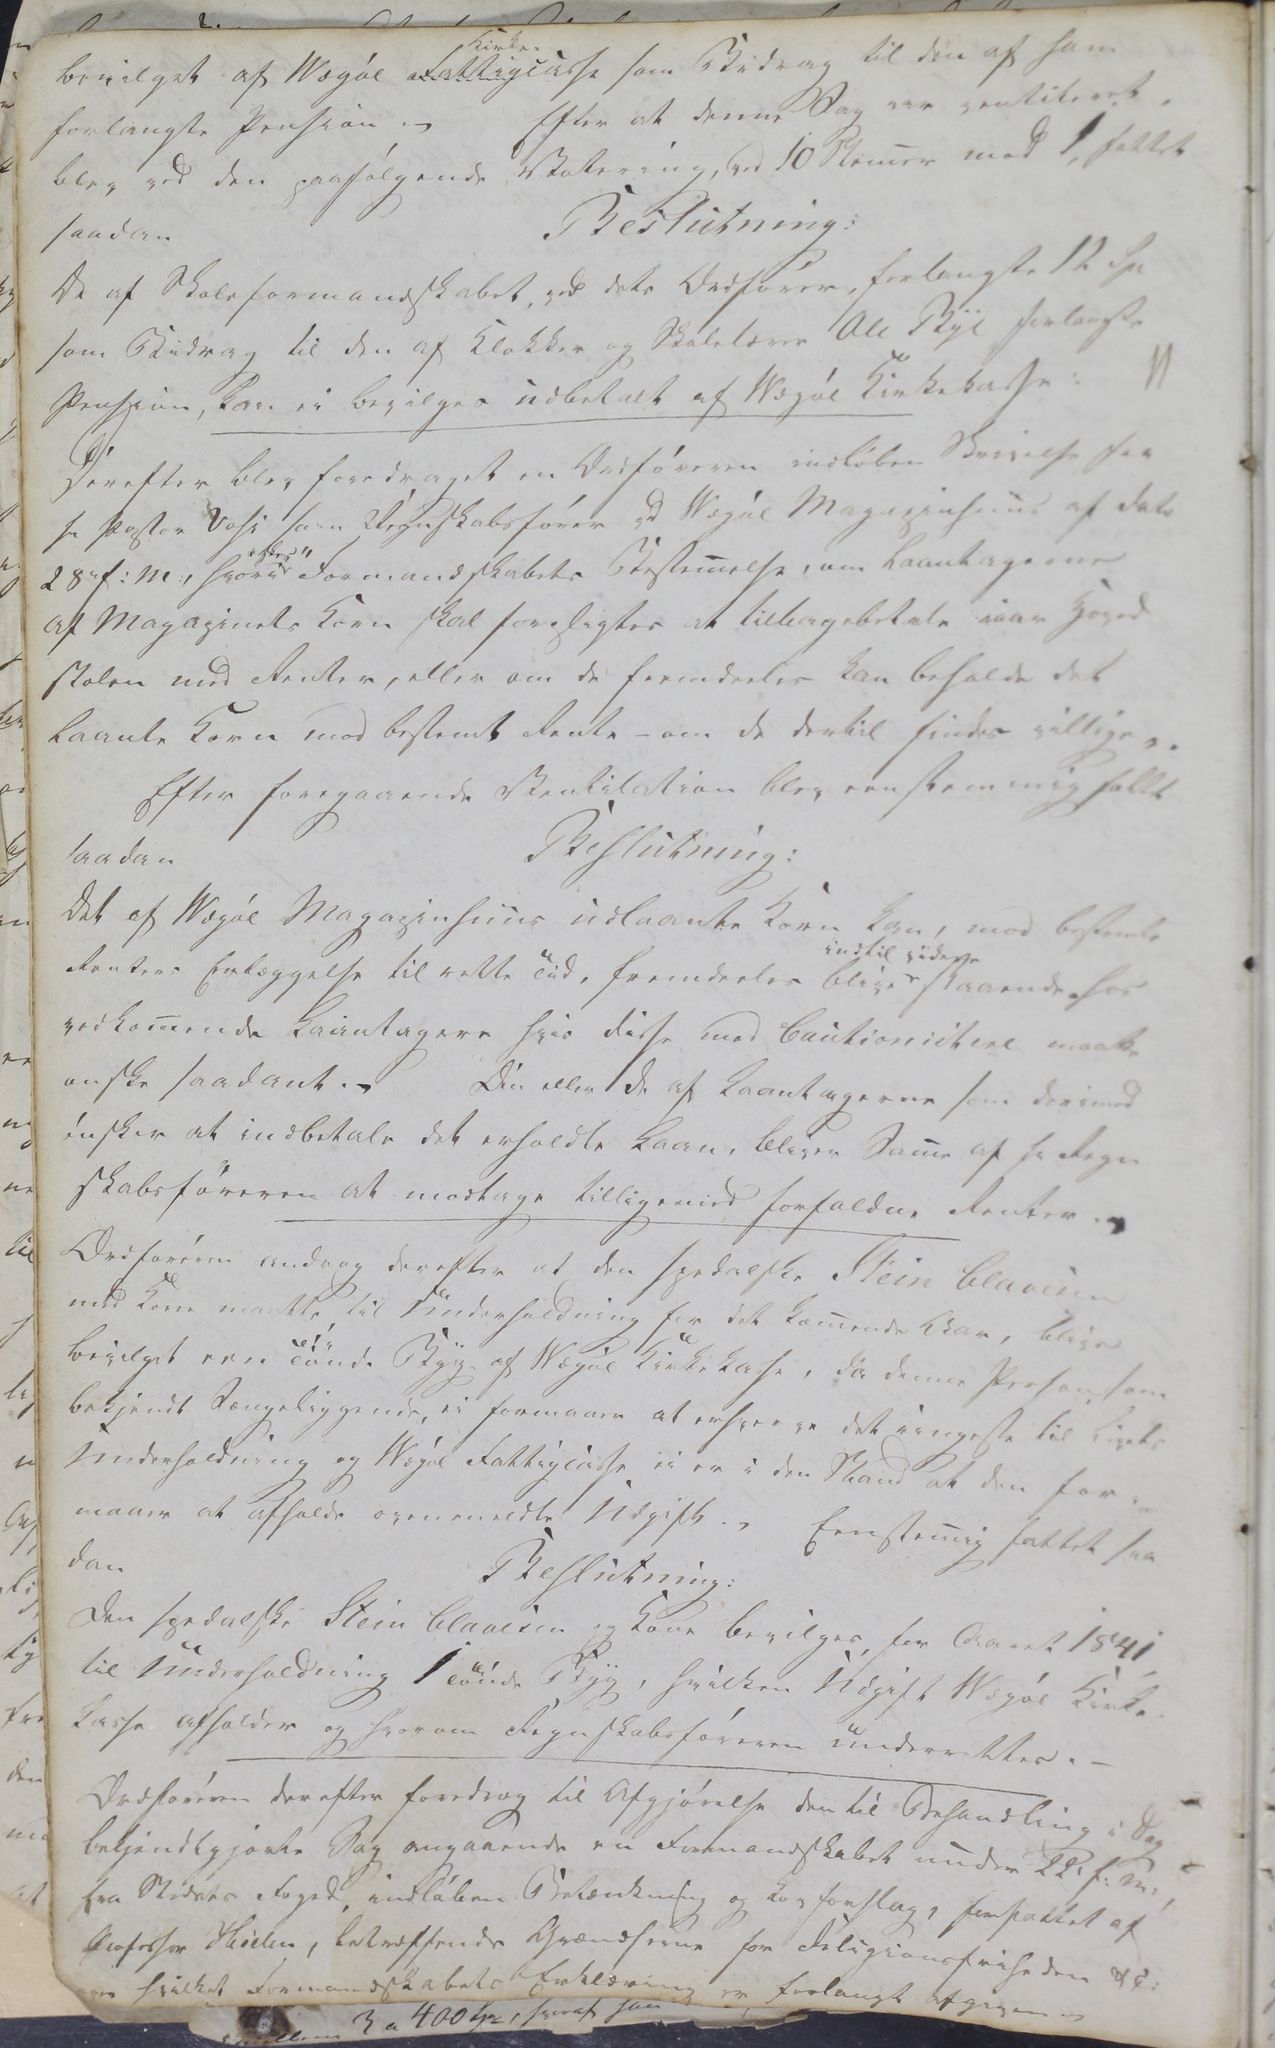 bevilget af Wegøe Kirke- Fattigcasse som Bidrag til den af ham
forlangte Pension „ Efter at denne Sag var ventileret,
blev ved den paafølgende Votering, ved 10 Stemer mod 1, fattet
saadan Beslutning:
De af Skoleformandskabet, ved dets Ordfører, forlangte 12 Spr
som Bidrag til den af Klokker og Skolelærer Ole Rye forlangte
Pension, kan ei bevilges udbetalt af Wegøe Kirkekasse:
Derefter blev foredraget en Ordføreren indløben Skrivelse fra
Hr Pastor Voss som Regnskabsfører ved Wegøe Magazinhuus af Dato
28 f: M:, hvori æskes Formandskabets Bestemelse, om Laantagerne
af Magazinets Korn skal forpligtes at tilbagebetale iaar Hoved
stolen med Renter, eller om de fremdeeles kan beholde det
laante Korn mod bestemt Rente - om de dertil findes villige „.
Efter foregaaende Ventilation blev eenstemmig fattet
saadan Beslutning:
Det af Wegøe Magazinhuus udlaante Korn kan, mod bestemte
Renters Erlæggelse til rette Tid, fremdeeles blive indtil videre staaende hos
vedkomende Laantagere hvis disse mod Cautionister maatte
ønske saadant. „ Den eller de af Laantagerne som derimod
ønsker at indbetale det erholdte Laan, bliver Same af Hr Regn
skabsføreren at modtage tilligemed forfaldne Renter. „
Ordføreren androg derefter at den spedalske Stein Claaesen
med Kone maatte til Underholdning for det komende Aar, blive
bevilget een Tønde Byg af Wegøe Kirkekasse, da denne Person som
bekjendt Sængeliggende, ei formaaer at erhverve det ringeste til Livets
Underholdning og Wegøe Fattigcasse ei er i den Stand at den for-
maaer at afholde ovenmeldte Udgift. „ Eenstemig fattet saa
dan Beslutning:
Den spedalske Stein Claaesen og Kone bevilges for Aaret 1841
til Underholdning 1 Tønde Byg, hvilken Udgift Wegøe Kirke-
kasse afholder og hvorom Regnskabsføreren underrettes. -
Ordføreren derefter foredrog til Afgjørelse den til Behandling i Dag
bekjendtgjorte Sag angaaende en Formandskabet under 22 f: M:,
fra Stedets Foged, indløben Betænkning og Lovforslag, forfattet af
Professor Hielm, betræffende Grændserne for Religionsfriheden &c:
over hvilket Formandskabets Erklæring er forlangt afgiven „
3 a 400 Spr, hvoraf han